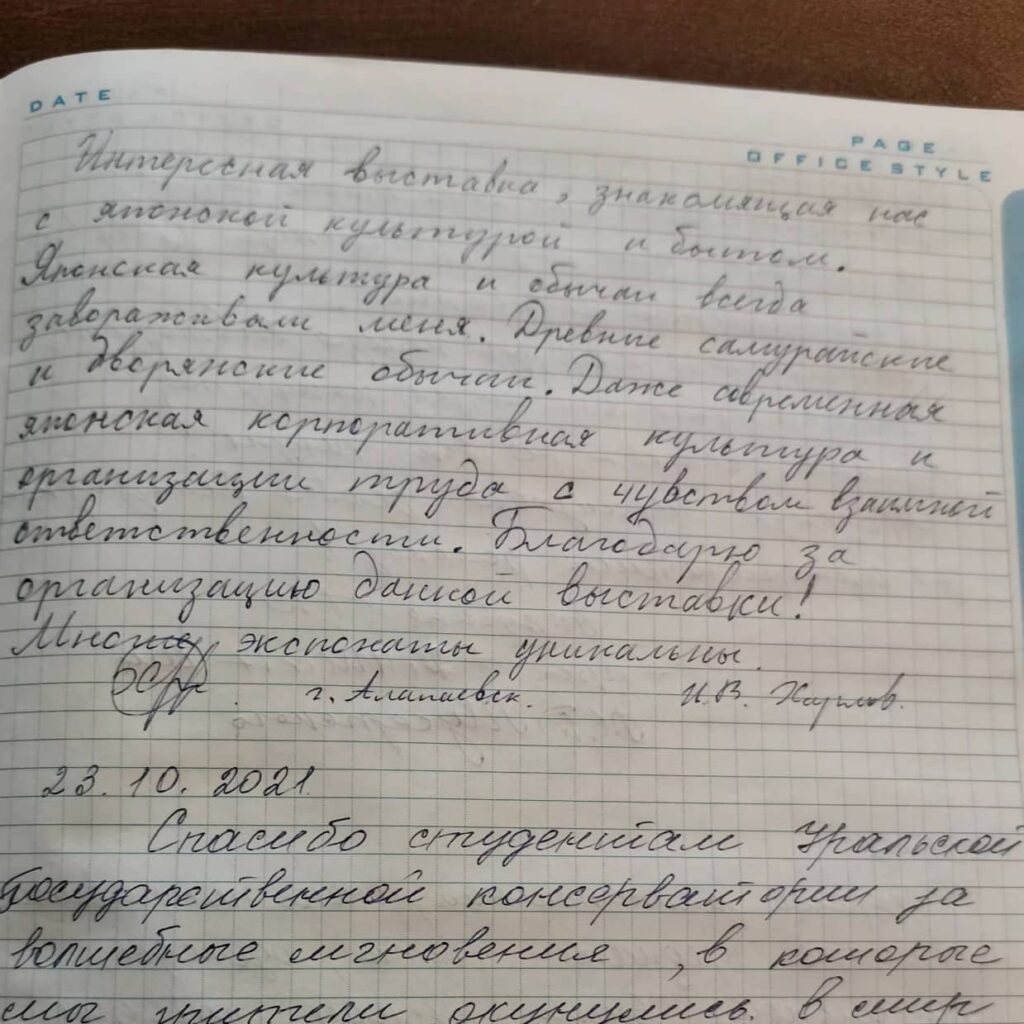 DATE
PAGE
OFFICE STYLE
Интересная выставка, знакомящая нас
с японской культурой и бытом.
Японская культура и обычаи всегда
завораживали меня. Древние самурайские
и дворянские обычаи. Даже современная
японская корпоративная культура и
организации труда с чувством взаимной
ответственности. Благодарю за
организацию данной выставки!
Многие экспонаты уникальны.
г. Алапаевск. И.В. Харлов.
23.10.2021.
Спасибо студентам Уральской
государственной консерватории за
волшебные мгновения, в которые
мы зрители окунулись в мир